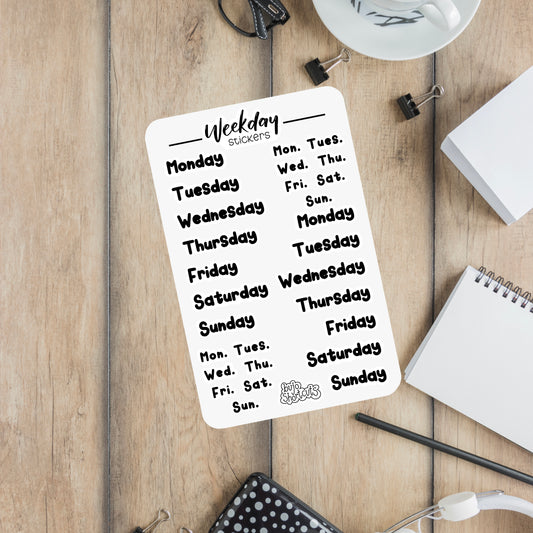 Weekday
stickers
Monday
Tuesday
Wednesday
Thursday
Friday
Saturday
Sunday
Mon. Tues.
Wed. Thu.
Fri. Sat.
Sun.
Mon. Tues.
Wed. Thu.
Fri. Sat.
Sun.
Monday
Tuesday
Wednesday
Thursday
Friday
Saturday
Sunday